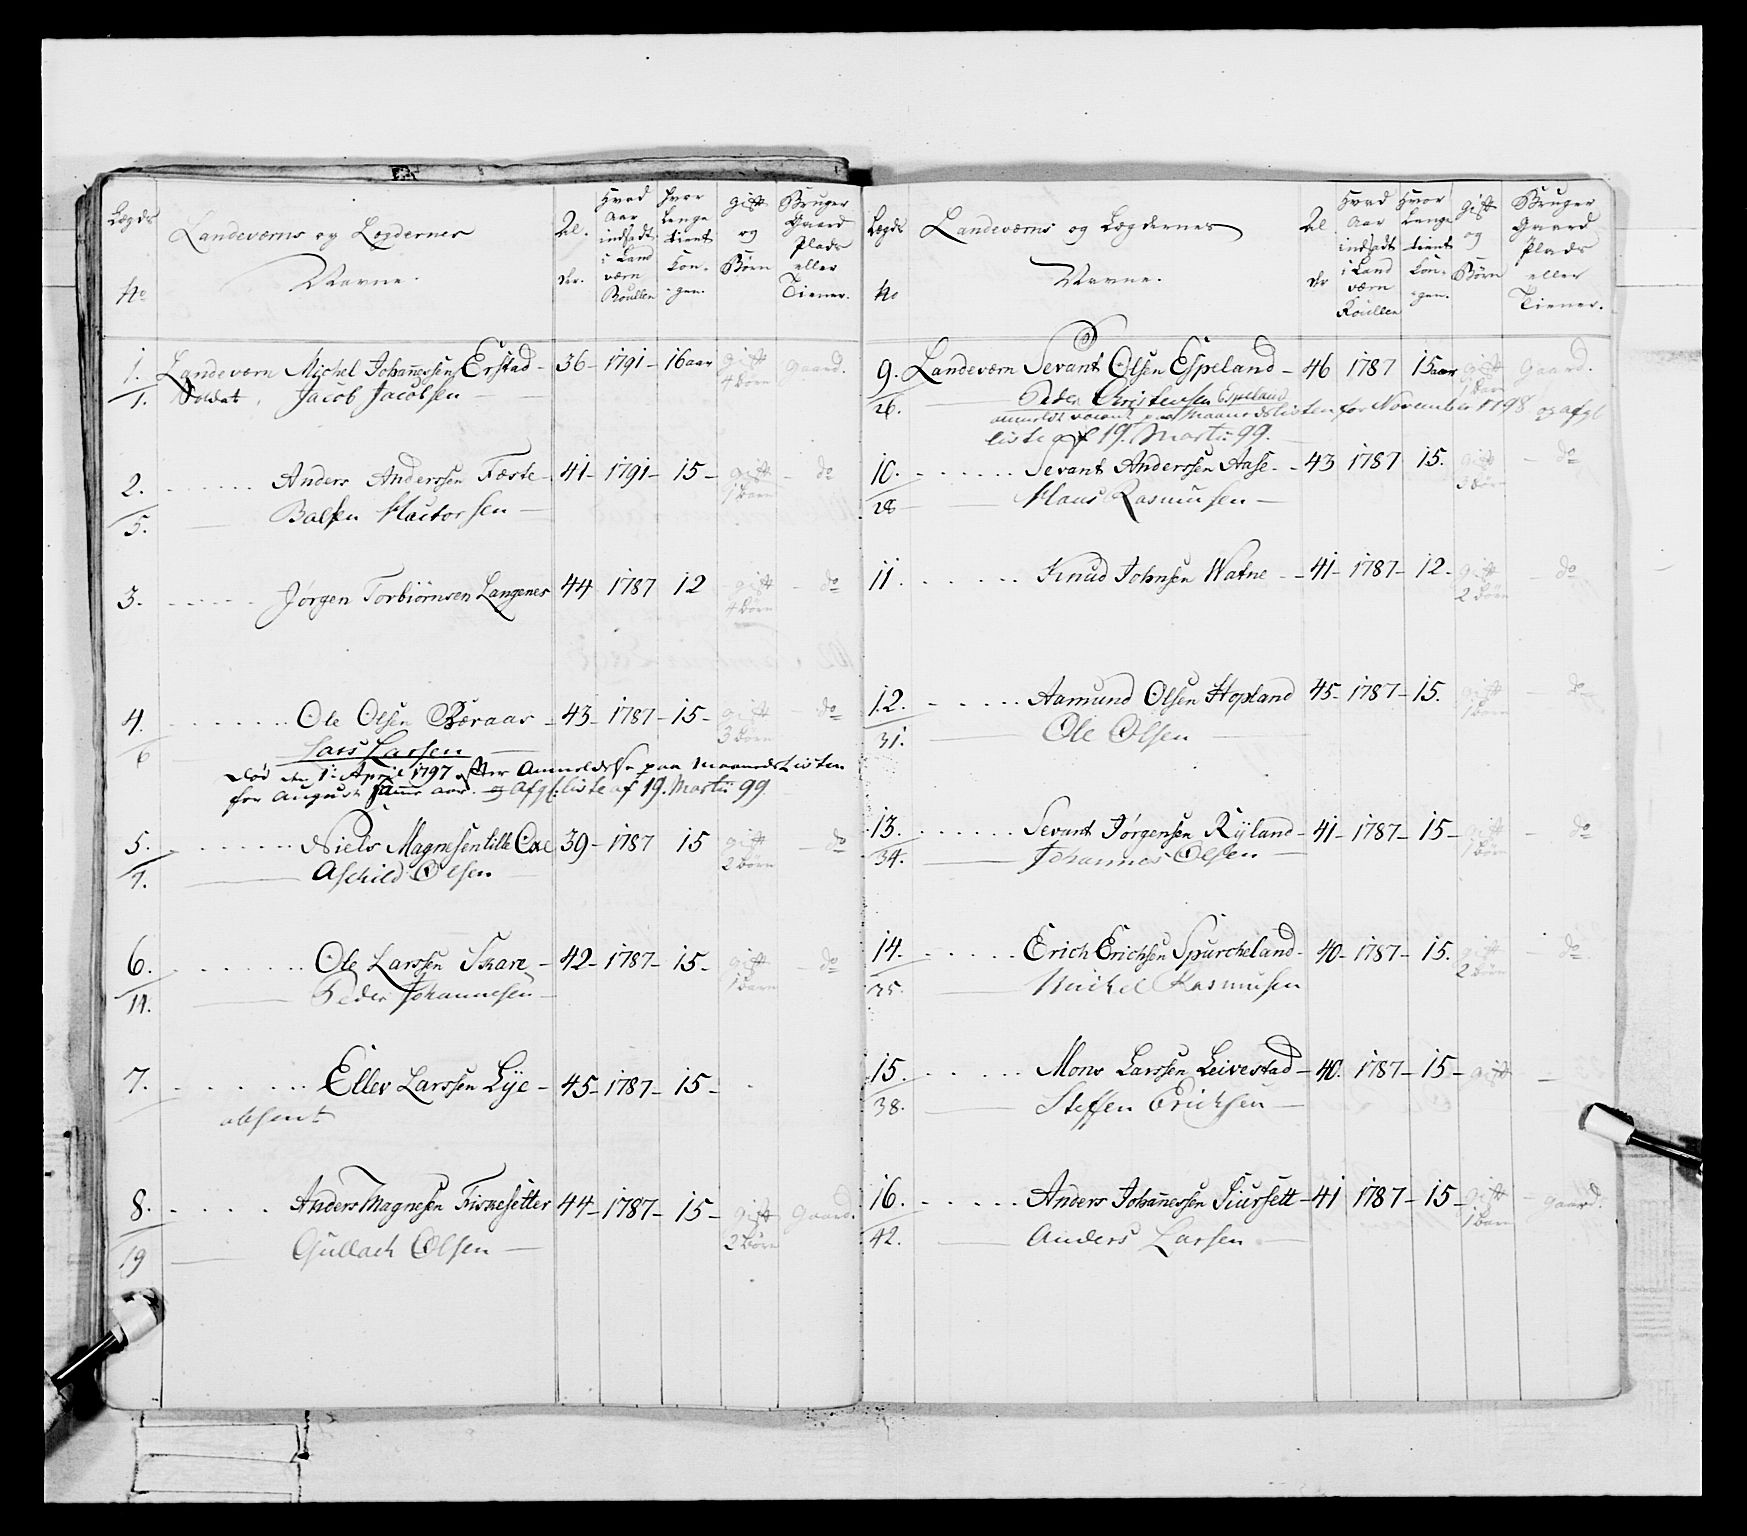 Lægds
No
Landeværns og Lægdernes
Navne.
Al.
der.
Hvad
Aar
indsadt
i Land
værn
Roullen
hvor
Lenge
tient
Kon-
gen.
gift
og
Børn
Bruger
Gaard
Plads
eller
Tiener.
1. Landeværn Michel Johannessen Erstad - 36 - 1791 - 16 aar gift 4 Børn gaard.
1. Soldat. Jacob Jacobsen
2. Anders Anderssen Fæste - 41 - 1791 - 15 - gift 1 barn - do
5. Balsen
3. Jørgen Torbiørnsen Langenes 44 1787 12 gift 4 Børn - do
4. Ole Olsen Bæraas - 43 - 1787 - 15 - gift 3 born - do
6 Lars Larsen
død den 1te April 1797 efter Anmeldelse paa Maanedslisten
for August samme aar. og Afg: liste af 19. Martii 99
5. Niels Magnesen lille Oxe 39 - 1787 15 gift 2 børn - do
7. Aschild Olsen
6. Ole Larssen Skare - 42 - 1787 - 15 - gift 1 barn - do
11. Peder Johannesen
7. Ellev Larssen Lye - 45 - 1787 - 15 -
absent
8. Anders Magnesen Fiskesetter 44 - 1787 - 15 - gift 2 børn Gaard.
19 Gullach Olsen
Lægds
No
Landeværns og Lægdernes
Navne.
Al
der
Hvad
Aar
indsadt
i Land
værn
Roullen
Hvor
Lenge
tient
Kon-
gen.
gift
og
Børn
Bruger
Gaard
Plads
eller
Tiener.
9. Landeværn Sevant Olsen Espeland - 46 1787 15 aar gift 1 barn Gaard.
26. Peder Christensen Espeland
anmeldt vacant paa Maanedslisten for November 1798 og afgl
liste af 19. Martii 99.
10. Sevant Anderssen Aase - 43 1787 15. gift 3 børn - do
28 Klaus Rasmusen
11. Knud Johnsen Watne - 41 - 1787 - 12 - gift 2 børn do
12. Aamund Olsen Hopland 45 - 1787 - 15. gift 1 barn do
31. Ole Olsen
13. Sevant Jørgensen Ryland - 41 - 1787 - 15 - gift 1 børn - do
34. Johannes Olsen
14. Erich Erichsen Spurcheland - 40 - 1787 - 15. gift 2 børn - do
35. Michel Rasmusen
15. Mons Larssen Leivestad - 40. 1787 - 15 - gift -
38. Steffen Erichsen
16. Anders Johannessen Siursett - 41 1787 - 15 - gift 1 barn - gaard.
42. Anders Larsen